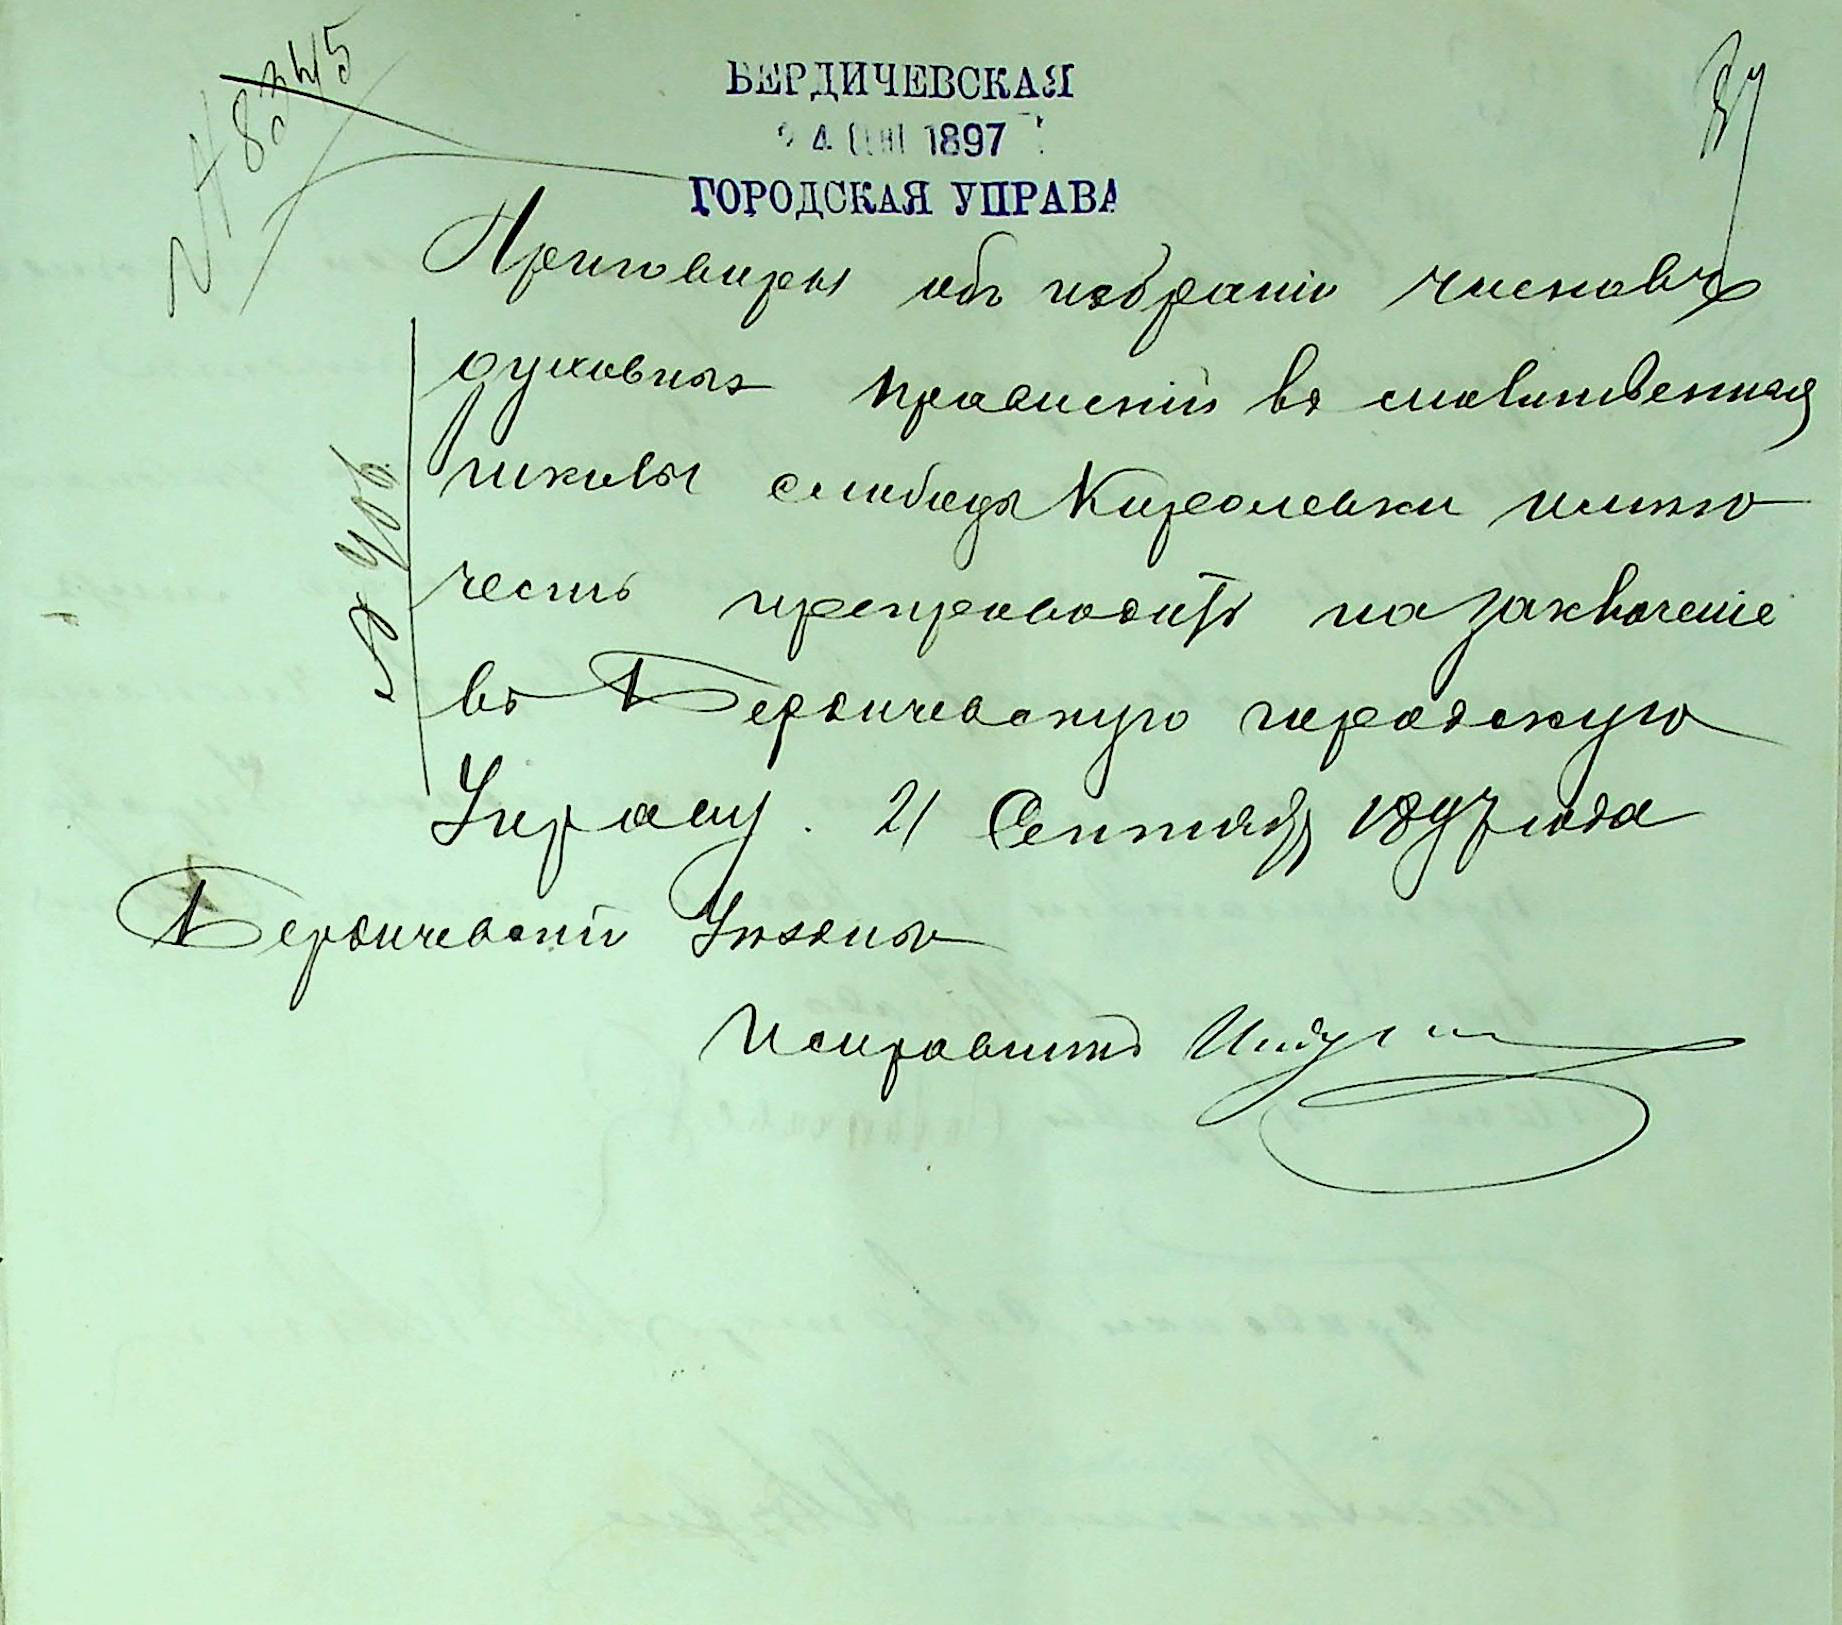 БЕРДИЧЕВСКАЯ
24 СЕН 1897
ГОРОДСКАЯ УПРАВА
Приговоры объ избраніи членовъ
духовныхъ правленій въ молитвенныя
школы слободы Королевки имѣю
честь препроводить на заключеніе
въ Бердичевскую городскую
Управу. 21 Сентября 1897 года
Бердичевскій Уѣздный
Исправникъ